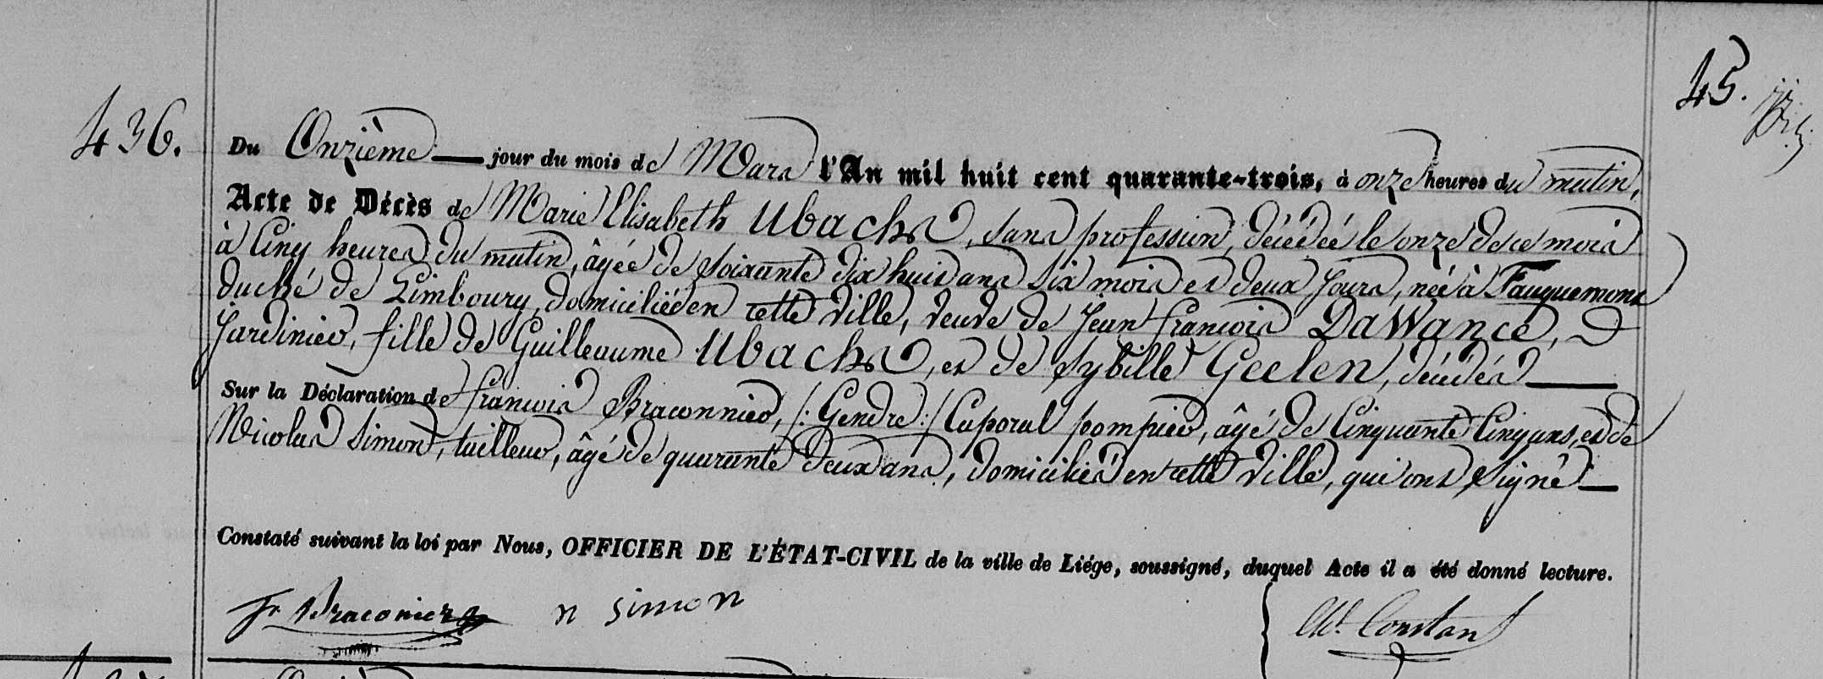 45.
436.
Du Onzième — jour du mois de Mars l'An mil huit cent quarante-trois, à onze heures du matin,
Acte de Décès de Marie Elisabeth Ubachs, sans profession, décédée le onze de ce mois
à Cinq heures du matin, âgée de soixante dix huit ans six mois et deux jours, née à Fauquemont
duché de Limbourg, domiciliée en cette ville, veuve de Jean françois DaWance,
Jardinier, fille de Guilleaume Ubachs, et de Sybille Geelen, décédés —
Sur la Déclaration de françois Braconnier, /: Gendre :/ Caporal pompier, âgé de Cinquante Cinq ans, et de
Nicolas Simon, tailleur, âgé de quarante deux ans, domiciliés en cette ville, qui ont Signé —
Constaté suivant la loi par Nous, OFFICIER DE L'ÉTAT-CIVIL de la ville de Liége, soussigné, duquel Acte il a été donné lecture.
fr Braconier n simon Constant